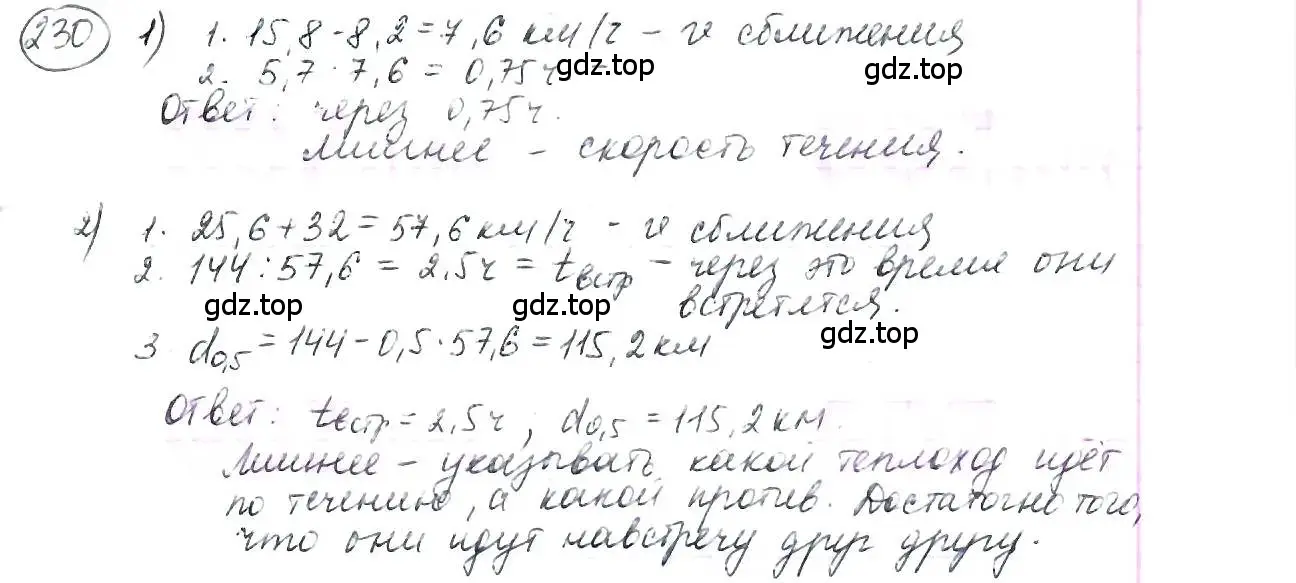 230 1) 1. 15,8 - 8,2 = 7,6 км/ч - v сближения
2. 5,7 : 7,6 = 0,75ч
gdz.top gdz.top
Ответ: через 0,75ч.
Лишнее - скорость течения.
2) 1. 25,6 + 32 = 57,6 км/ч - v сближения
2. 144 : 57,6 = 2,5ч = tвстр - через это время они
встретятся.
gdz.top gdz.top gdz.top
3 d0,5 = 144 - 0,5 · 57,6 = 115,2 км
Ответ: tвстр = 2,5ч, d0,5 = 115,2 км.
Лишнее - указывать, какой теплоход идёт
по течению, а какой против. Достаточно того,
что они идут навстречу друг другу.